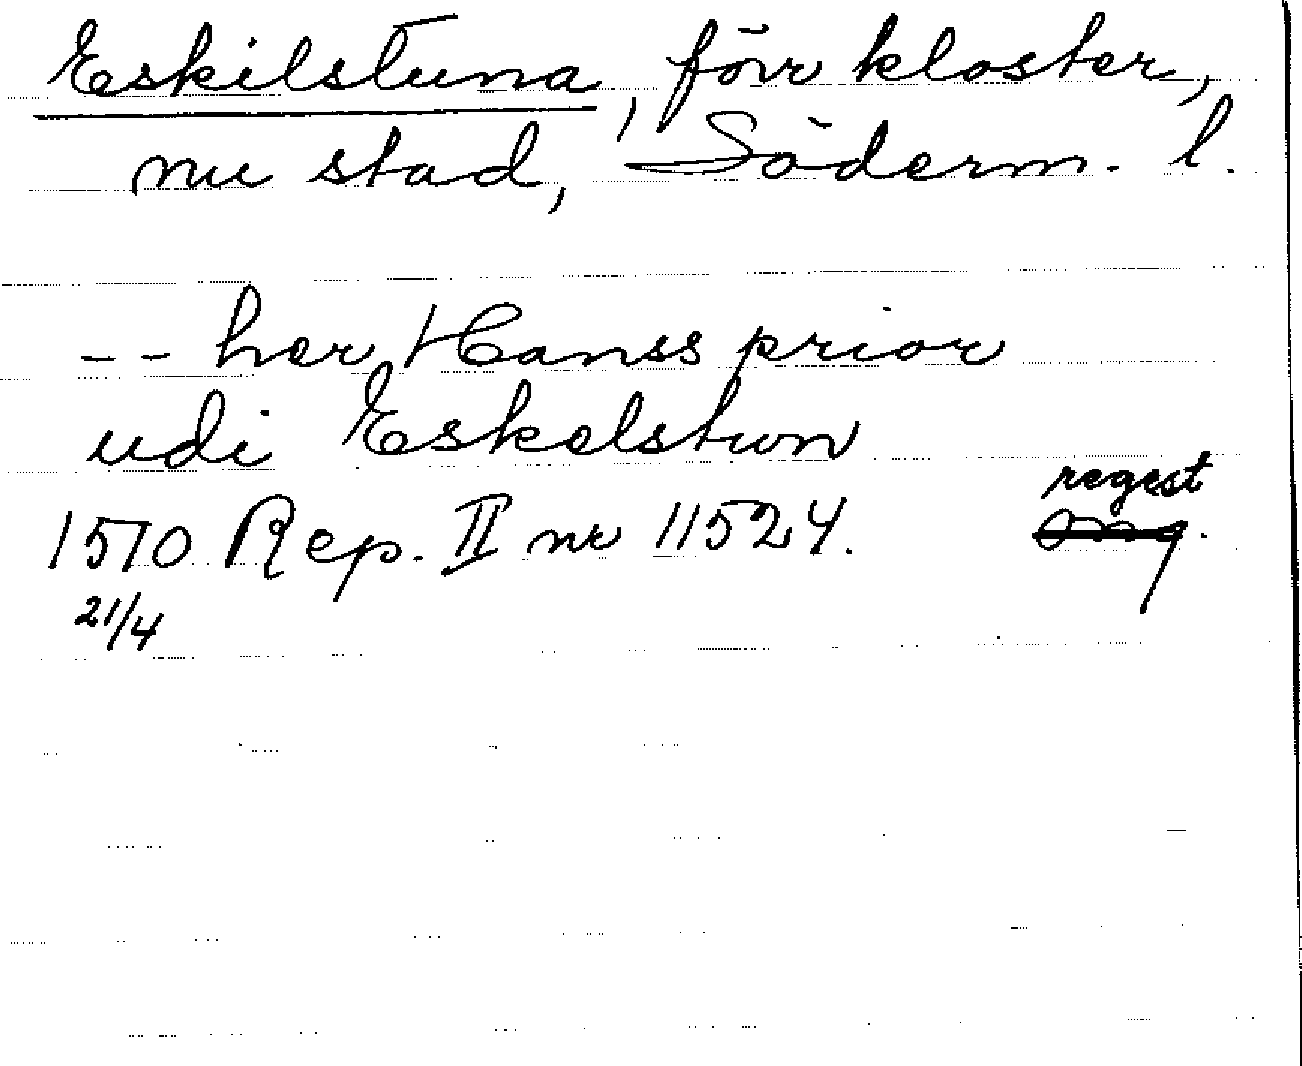 Eskilstuna, förr kloster,
nu stad, Söderm. l.
-- her Hanss prior
udi Eskelstwn
regest
1510 Rep. II nr 11524.
21/4